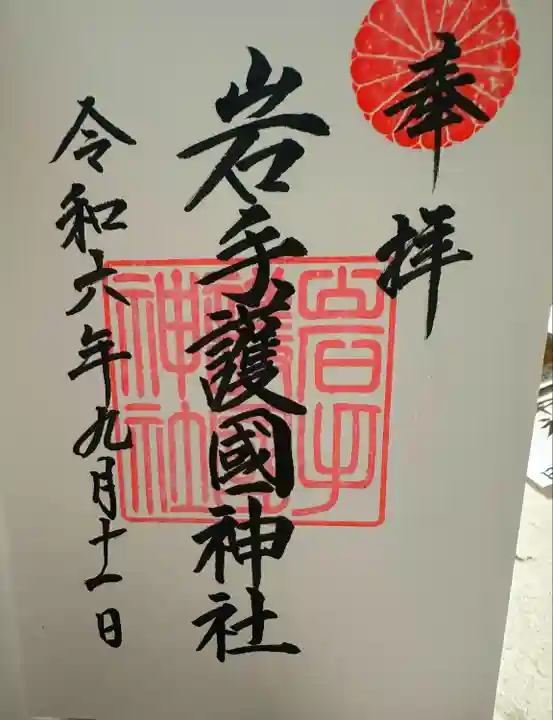 奉拝
岩手護國神社
岩手
護國
神社
令和六年九月十一日